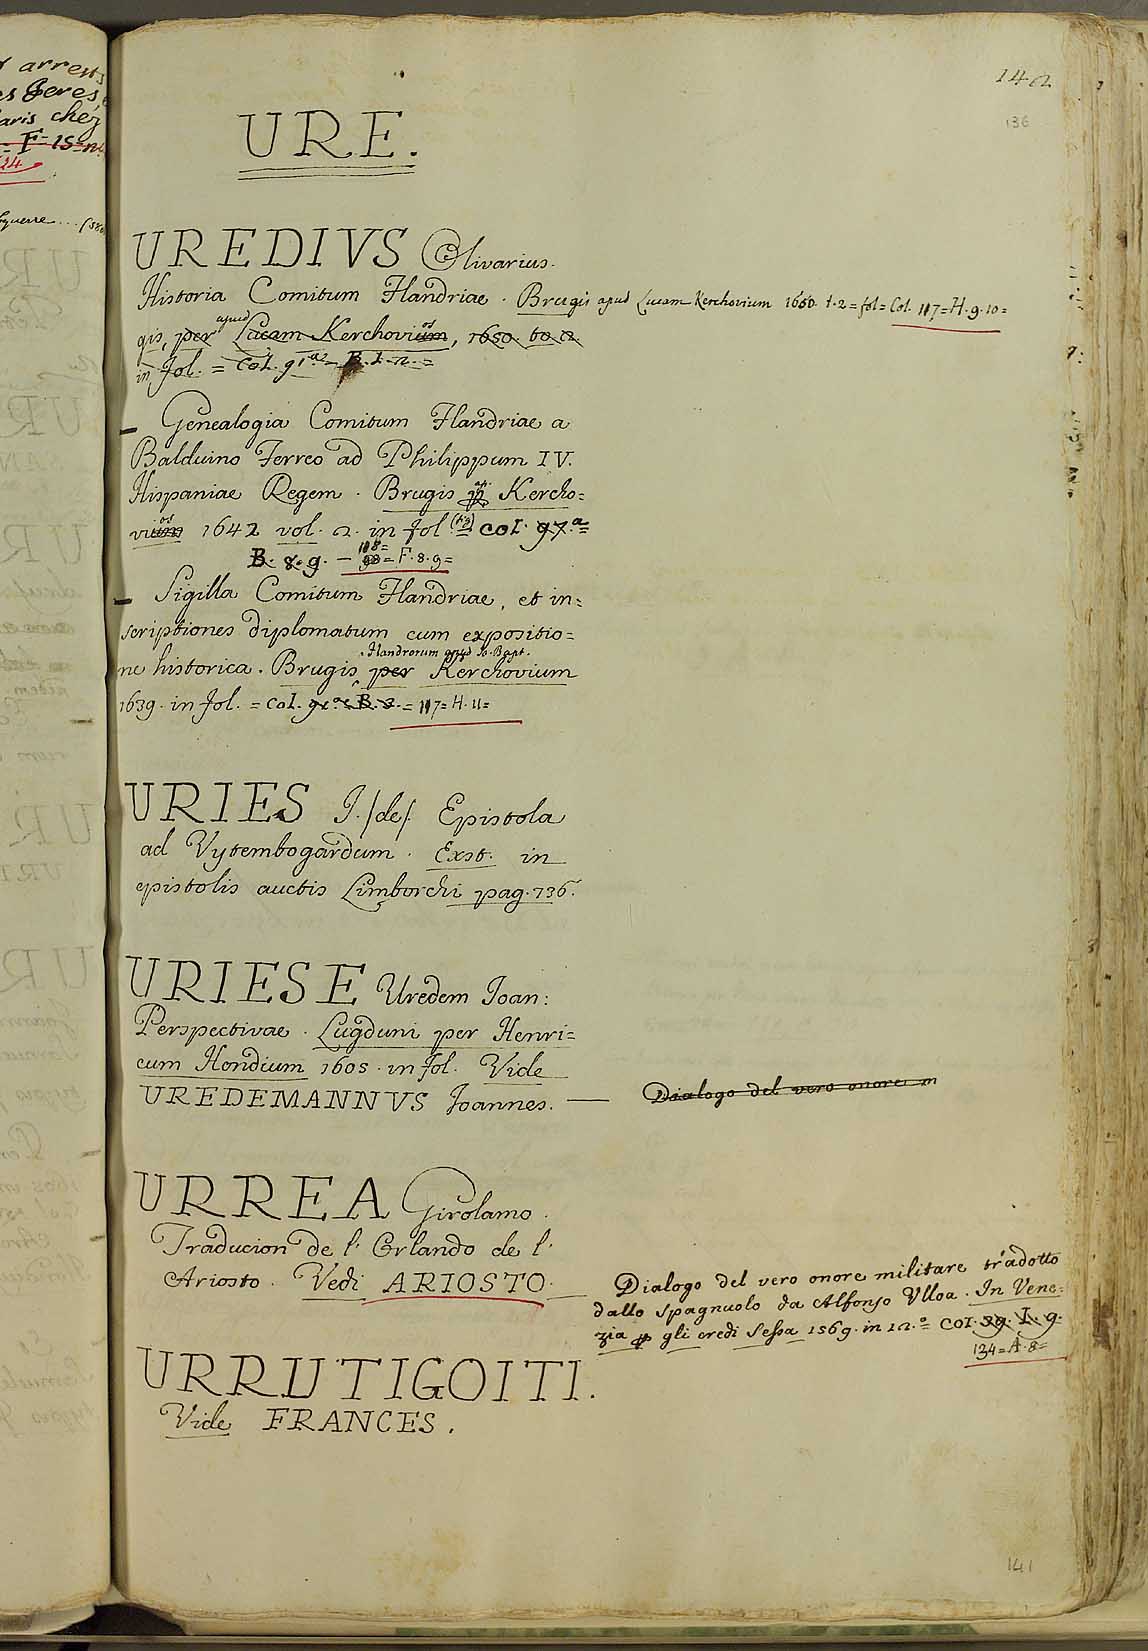 142
136
URE.
UREDIVS Olivarius.
Historia Comitum Flandriae. Brugis apud Lucam Kerchovium 1650. t. 2 = fol = Col. 117 = H. 9. 10 =
gis, per apud Lucam Kerchovium, 1650. to. 2.
in fol. = Col. 91.a = B. 1. 2. =
— Genealogia Comitum Flandriae a
Balduino Ferreo ad Philippum IV.
Hispaniae Regem. Brugis Kercho=
vium 1642 vol. 2. in fol = COI. 97.a =
B. 8. 9. — 118 = F. 8. 9 =
— Sigilla Comitum Flandriae, et in=
scriptiones diplomatum cum expositio=
Flandrorum apud Jo. Bapt.
ne historica. Brugis, per Kerchovium
1639. in fol. = COI. B. 3. = 117 = H. 11 =
URIES J. /de/. Epistola
ad Vytembogardum. Exst. in
epistolis auctis Limborchi pag. 736.
URIESE Uredem Joan:
Perspectivae. Lugduni per Henri=
cum Hondium 1605. in fol. Vide
UREDEMANNVS Joannes. — Dialogo del vero onore m
URREA Girolamo.
Traducion de l' Orlando de l'
Ariosto. Vedi ARIOSTO. —
Dialogo del vero onore militare tradotto
dallo spagnuolo da Alfonso Ulloa. In Vene=
zia gli eredi Sessa 1569. in 12.o = COI. 39. I. 9.
134 = A. 8 =
URRUTIGOITI.
Vide FRANCES.
141
arrests
es
aris chez
F = 15 = n.
24